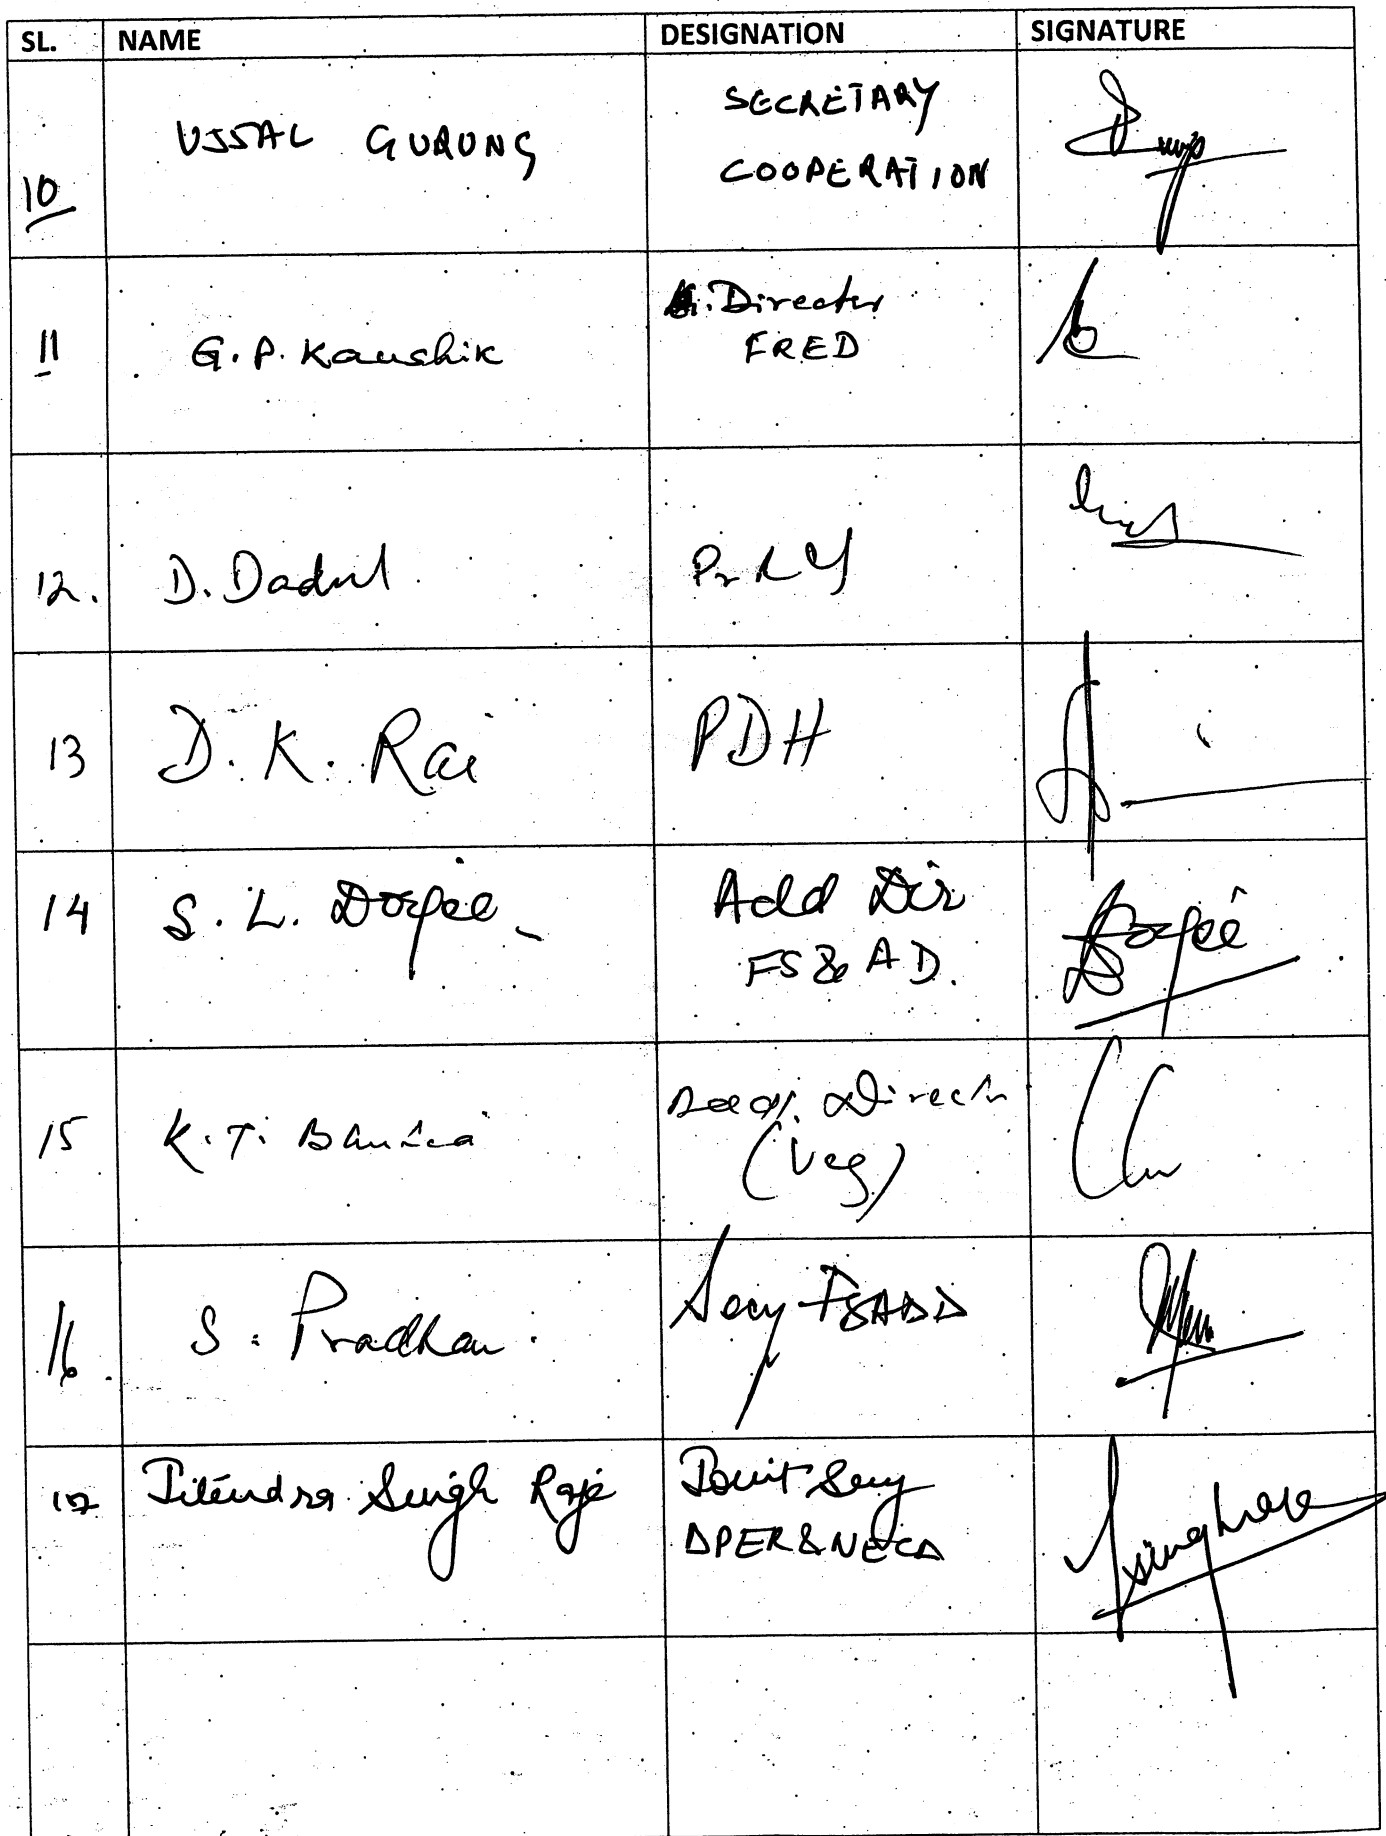 SL. NAME DESIGNATION SIGNATURE
10 UJJAL GURUNG SECRETARY
COOPERATION
11 G.P. Kaushik Director
FRED
12. D. Dadul
13 D. K. Rai PDH
14 S. L. Dorjee Add Dir
FS & AD.
Dorjee
15 K. T. Director
(Veg)
16 S. Pradhan Secy FSADD
17 Jitendra Singh Raje Joint Secy
DPER&NECD